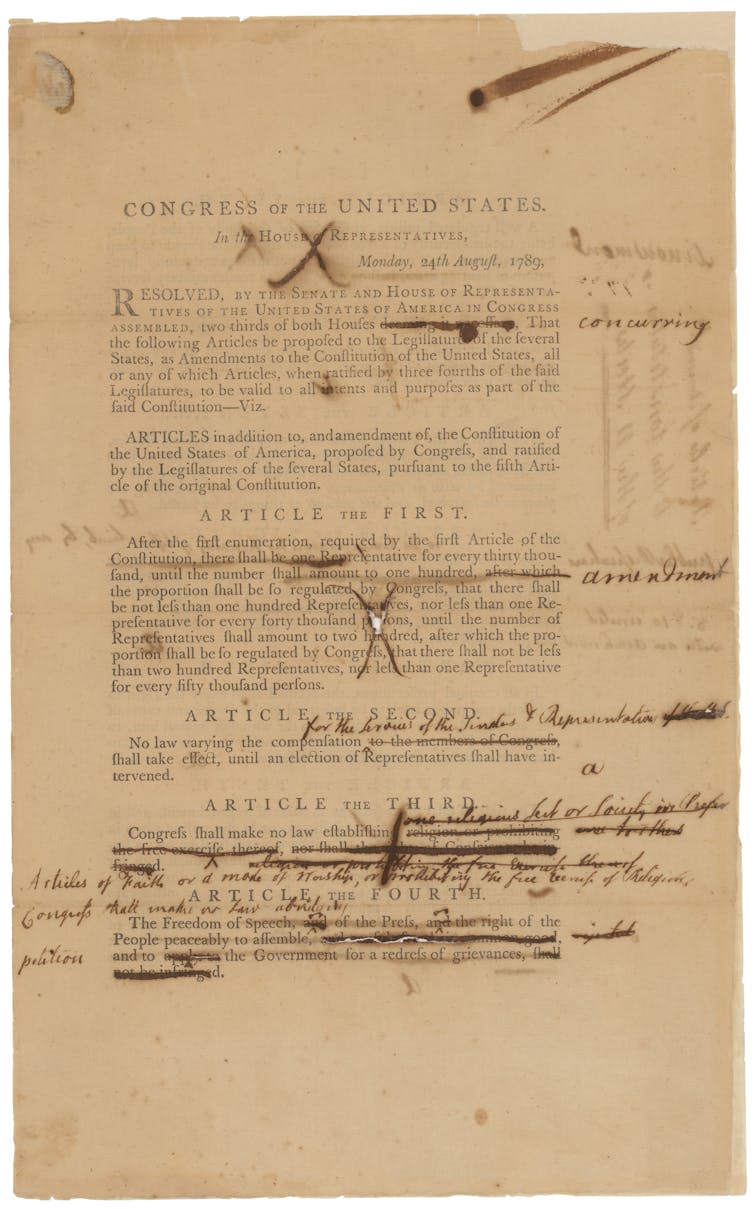 CONGRESS OF THE UNITED STATES.
In the HOUSE of REPRESENTATIVES,
Monday, 24th Auguſt, 1789,
RESOLVED, BY THE SENATE AND HOUSE OF REPRESENTA-
TIVES OF THE UNITED STATES OF AMERICA IN CONGRESS
ASSEMBLED, two thirds of both Houſes deeming it neceſſary, That concurring
the following Articles be propoſed to the Legiſlatures of the ſeveral
States, as Amendments to the Conſtitution of the United States, all
or any of which Articles, when ratified by three fourths of the ſaid
Legiſlatures, to be valid to all intents and purpoſes as part of the
ſaid Conſtitution—Viz.
ARTICLES in addition to, and amendment of, the Conſtitution of
the United States of America, propoſed by Congreſs, and ratified
by the Legiſlatures of the ſeveral States, purſuant to the fifth Arti-
cle of the original Conſtitution.
ARTICLE THE FIRST.
After the firſt enumeration, required by the firſt Article of the
Conſtitution, there ſhall be one Repreſentative for every thirty thou-
ſand, until the number ſhall amount to one hundred, after which amendment
the proportion ſhall be ſo regulated by Congreſs, that there ſhall
be not leſs than one hundred Repreſentatives, nor leſs than one Re-
preſentative for every forty thouſand perſons, until the number of
Repreſentatives ſhall amount to two hundred, after which the pro-
portion ſhall be ſo regulated by Congreſs, that there ſhall not be leſs
than two hundred Repreſentatives, nor leſs than one Repreſentative
for every fifty thouſand perſons.
ARTICLE THE SECOND.
for the ſervices of the Senators & Repreſentatives
No law varying the compenſation to the members of Congreſs,
ſhall take effect, until an election of Repreſentatives ſhall have in- a
tervened.
ARTICLE THE THIRD.
one religious Sect or Society in
Congreſs ſhall make no law eſtabliſhing religion or prohibiting
the free exerciſe thereof, nor ſhall the
fringed. religion or prohibiting the free exerciſe thereof
Articles of Faith or a mode of Worship, or prohibiting the free exercise of Religion,
ARTICLE THE FOURTH.
Congreſs ſhall make no law abridging
The Freedom of Speech, and of the Preſs, and the right of the
People peaceably to aſſemble,
petition and to the Government for a redreſs of grievances, ſhall
not be infringed.